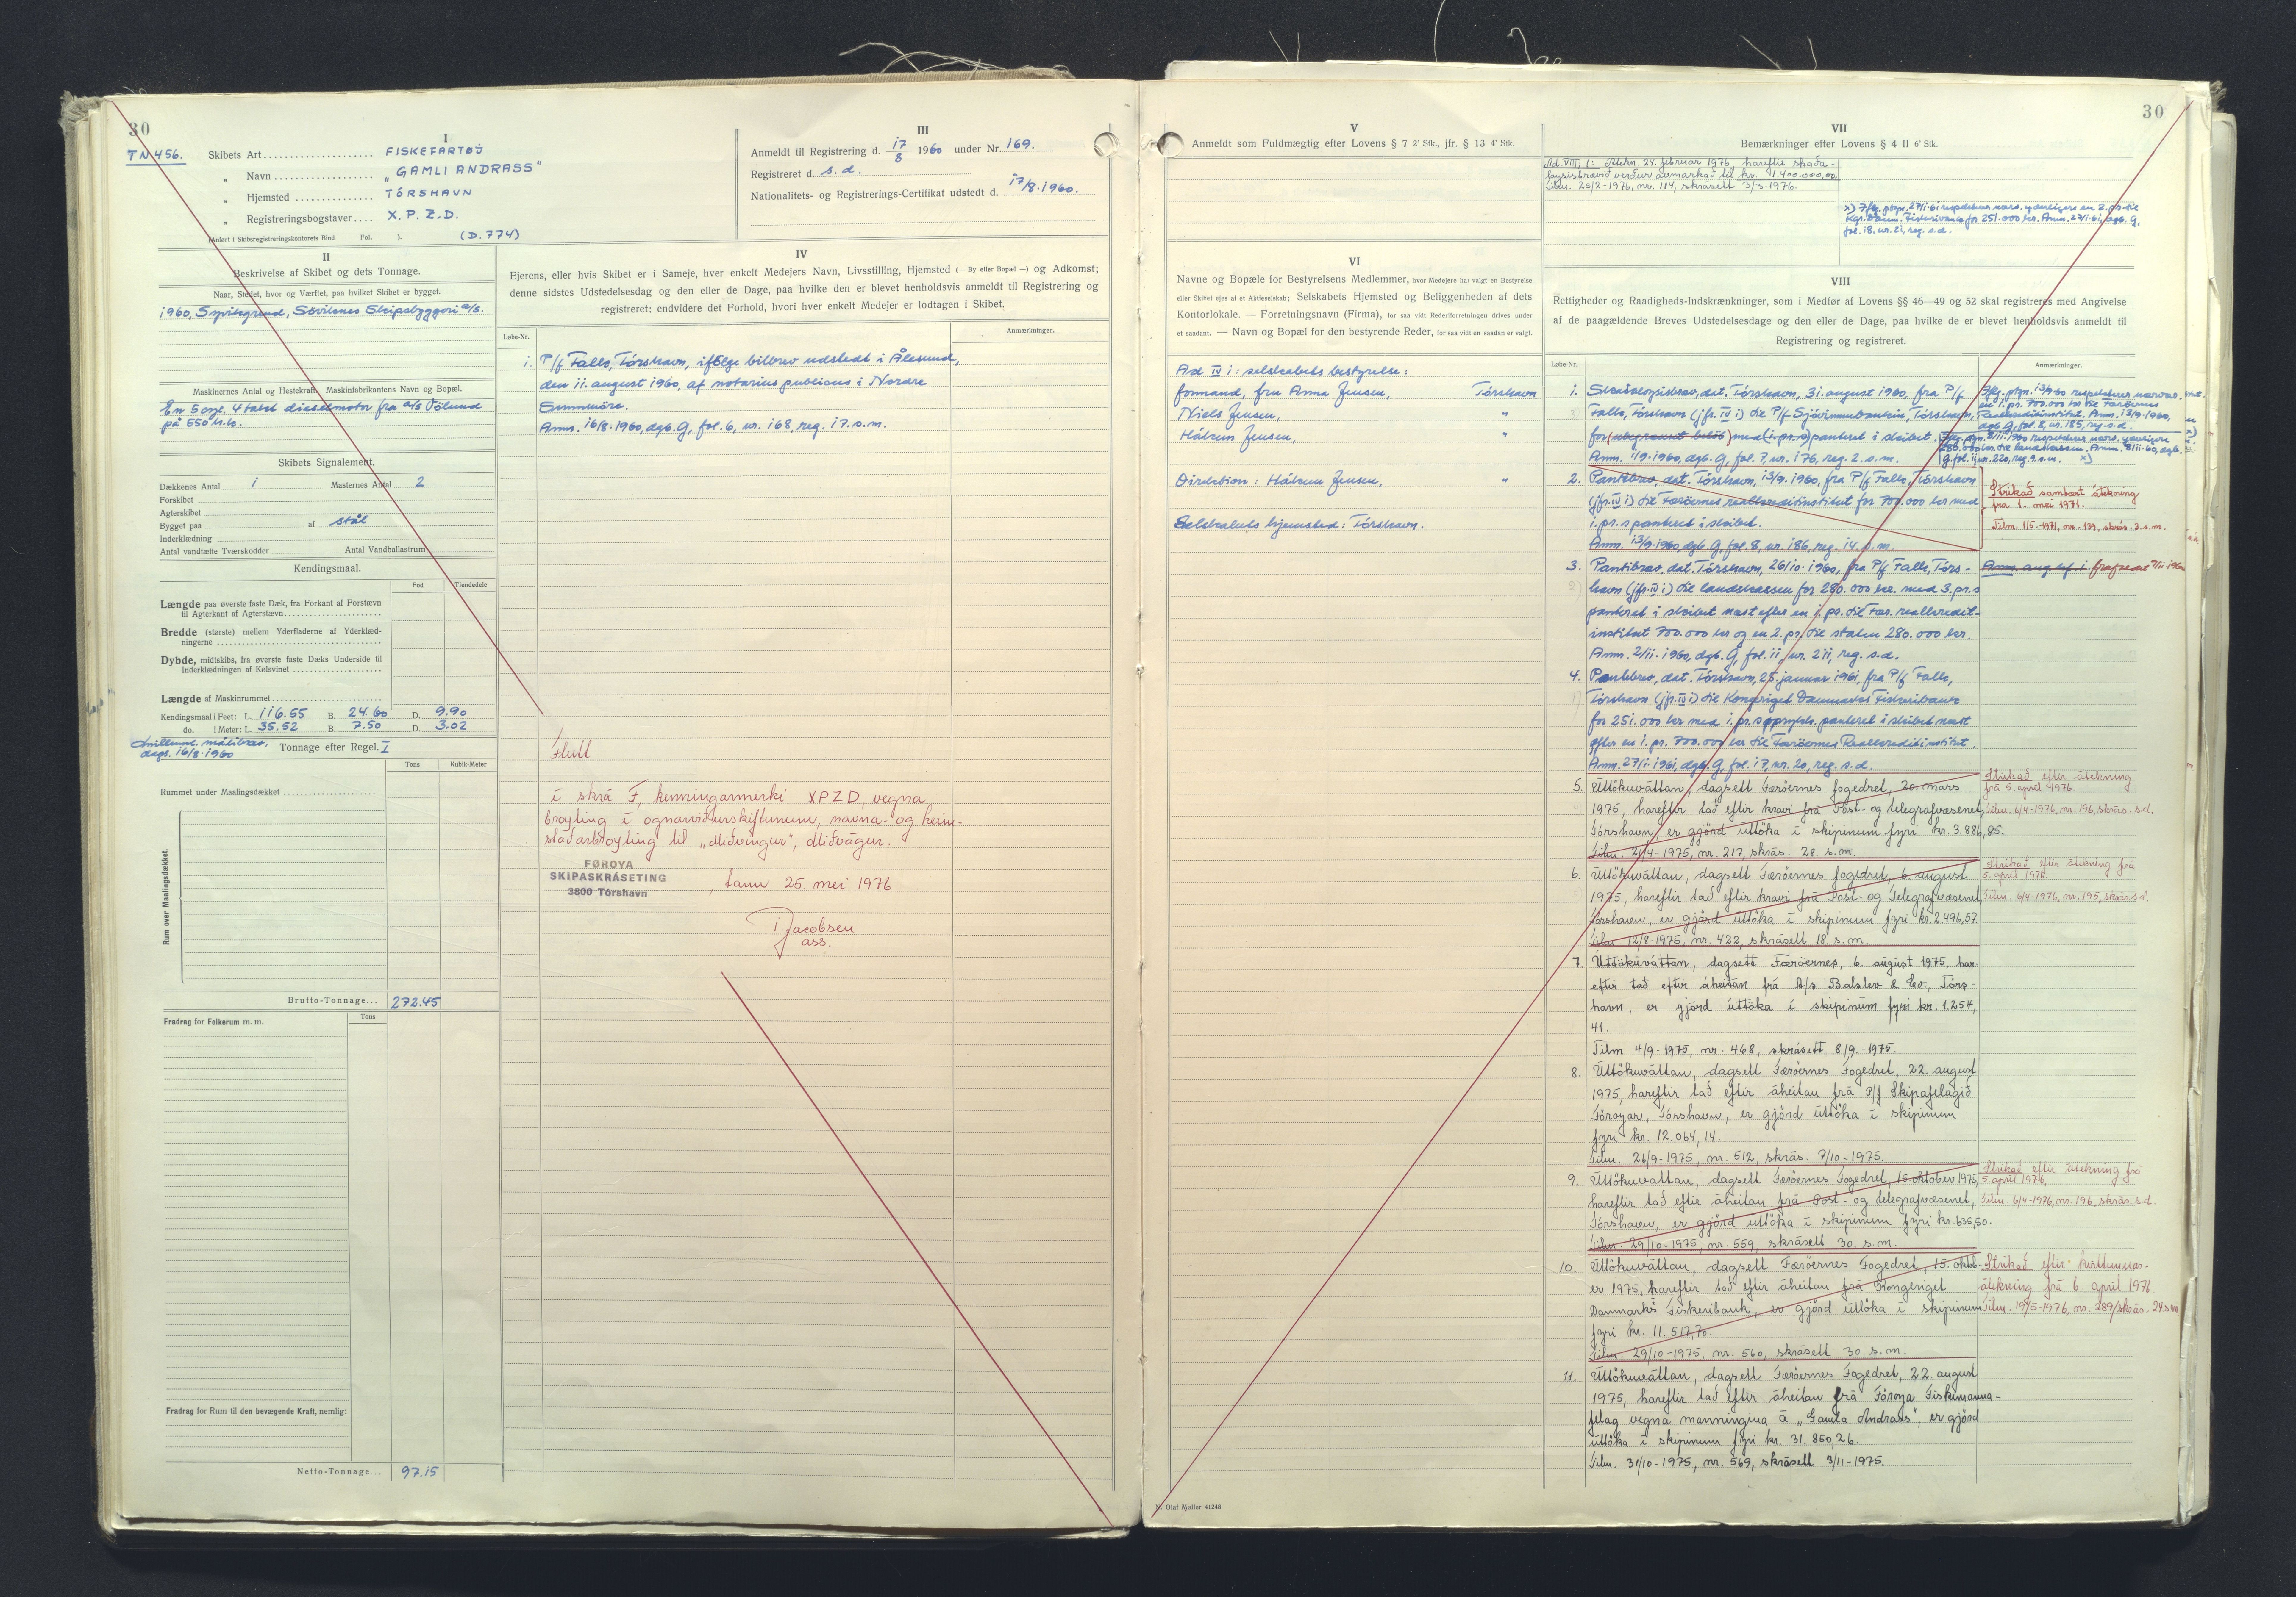 30
TN 456.
I
Skibets Art FISKEFARTØJ
" Navn "GAMLI ANDRASS"
" Hjemsted TÓRSHAVN
" Registreringsbogstaver X.P.Z.D.
(Anført i Skibsregistreringskontorets Bind Fol. ). (D.774)
III
Anmeldt til Registrering d. 17/8 1960 under Nr. 169.
Registreret d. s.d.
Nationalitets- og Registrerings-Certifikat udstedt d. 17/8.1960.
II
Beskrivelse af Skibet og dets Tonnage.
Naar, Stedet, hvor og Værftet, paa hvilket Skibet er bygget.
1960, Syvikgrend, Söviknes Skipsbyggeri a/s.
Maskinernes Antal og Hestekraft. Maskinfabrikantens Navn og Bopæl.
En 5 cyl. 4 takt dieselmotor fra a/s Völund
på 550 hk.
Skibets Signalement.
Dækkenes Antal 1 Masternes Antal 2
Forskibet
Agterskibet
Bygget paa af stål
Inderklædning
Antal vandtætte Tværskodder Antal Vandballastrum
Kendingsmaal.
Fod Tiendedele
Længde paa øverste faste Dæk, fra Forkant af Forstævn
til Agterkant af Agterstævn
Bredde (største) mellem Yderfladerne af Yderklæd-
ningerne
Dybde, midtskibs, fra øverste faste Dæks Underside til
Inderklædningen af Kølsvinet
Længde af Maskinrummet
Kendingsmaal i Feet: L. 116.55 B. 24.60 D. 9.90
do. i Meter: L. 35.52 B. 7.50 D. 3.02
målibrev,
dags. 16/8-1960
Tonnage efter Regel. I
Tons Kubik-Meter
Rummet under Maalingsdækket
Rum over Maalingsdækket.
Brutto-Tonnage... 272.45
Fradrag for Folkerum m. m. Tons
Fradrag for Rum til den bevægende Kraft, nemlig:
Netto-Tonnage... 97.15
IV
Ejerens, eller hvis Skibet er i Sameje, hver enkelt Medejers Navn, Livsstilling, Hjemsted (— By eller Bopæl —) og Adkomst;
denne sidstes Udstedelsesdag og den eller de Dage, paa hvilken den er blevet henholdsvis anmeldt til Registrering og
registreret; endvidere det Forhold, hvori hver enkelt Medejer er lodtagen i Skibet.
Løbe-Nr. Anmærkninger.
1. P/f Falk, Tórshavn, ifölge bilbrev udstedt i Ålesund,
den 11. august 1960, af notarius publicus i Nordre
Sunnmöre.
Anm. 16/8.1960, dgb. G, fol. 6, nr. 168, reg. 17. s.m.
Flutt
í skrá F, kenningarmerki XPZD, vegna
broyting í ognaviðurskiftunum, navna- og heim-
staðarbroyting til „Miðvingur", Miðvágur.
FØROYA
SKIPASKRÁSETING
3800 Tórshavn
, tann 25. mei 1976
Jacobsen
ass.
30
V
Anmeldt som Fuldmægtig efter Lovens § 7 2' Stk., jfr. § 13 4' Stk.
VI
Navne og Bopæle for Bestyrelsens Medlemmer, hvor Medejere har valgt en Bestyrelse
eller Skibet ejes af et Aktieselskab; Selskabets Hjemsted og Beliggenheden af dets
Kontorlokale. — Forretningsnavn (Firma), for saa vidt Rederiforretningen drives under
et saadant. — Navn og Bopæl for den bestyrende Reder, for saa vidt en saadan er valgt.
Ad IV 1: selskabets bestyrelse:
formand, fru Anna Jensen, Tórshavn
Niels Jensen, "
Hákun Jensen, "
Direktion: Hákun Jensen, "
Selskabets hjemsted: Tórshavn.
N. Olaf Møller 41248
VII
Bemærkninger efter Lovens § 4 II 6' Stk.
Ad. VIII, 1: Átekn. 24. februar 1976, hareftir skaða-
loysisbrævið verður avmarkað til kr. 1.400.000,00.
Tilm. 28/2-1976, nr. 114, skrásett 3/3-1976.
x) Iflg. ptgn. 27/1-61 respekterer nærv. yderligere en 2. pr. til
Kgr. Danm. Fiskeribank for 251.000 kr. Anm. 27/1-61, dgb. G,
fol. 18, nr. 21, reg. s.d.
VIII
Rettigheder og Raadigheds-Indskrænkninger, som i Medfør af Lovens §§ 46—49 og 52 skal registreres med Angivelse
af de paagældende Breves Udstedelsesdage og den eller de Dage, paa hvilke de er blevet henholdsvis anmeldt til
Registrering og registreret.
Løbe-Nr. Anmærkninger.
1. Skadeslösbrev, dat. Tórshavn, 31. august 1960, fra P/f
Falk, Tórshavn (jfr. IV 1) til P/f Sjóvinnubankin, Tórshavn,
for (ubegrænset belöb) med (1. pr. s) panteret i skibet.
Anm. 1/9-1960, dgb. G, fol. 7, nr. 176, reg. 2. s.m.
Iflg. ptgn. 13/9-60 respekterer nærvær.
en 1. pr. 700.000 kr til Færöernes
Realkreditinstitut. Anm. 13/9-1960,
dgb. G, fol. 8, nr. 185, reg. s.d.
Iflg. dgn. 8/11-1960 respekterer nærv. yderligere
280.000 kr. til landskassen. Anm. 8/11-60, dgb.
G, fol. 11, nr. 220, reg. 9. s.m. x)
2. Pantebrev, dat. Tórshavn, 13/9.1960, fra P/f Falk, Tórshavn
(jfr. IV 1) til Færöernes realkreditinstitut for 700.000 kr med
1. pr. s panteret i skibet.
Anm. 13/9-1960, dgb. G, fol. 8, nr. 186, reg. 14. s.m.
Strikað sambært átekning
frá 1. mei 1971.
Tilm. 1/5-1971, nr. 139, skrás. 3. s.m.
3. Pantebrev, dat. Tórshavn, 26/10-1960, fra P/f Falk, Tórs-
havn (jfr. IV 1) til landskassen for 280.000 kr. med 3. pr. s
panteret i skibet næst efter en 1. pr. til Fær. realkredit-
institut 700.000 kr og en 2. pr. til staten 280.000 kr.
Anm. 2/11-1960, dgb. G, fol. 11, nr. 211, reg. s.d.
4. Pantebrev, dat. Tórshavn, 25. januar 1961, fra P/f Falk,
Tórshavn (jfr. IV 1) til Kongeriget Danmarks Fiskeribank
for 251.000 kr med 1. pr. s oprykk. panteret i skibet næst
efter en 1. pr. 700.000 kr til Færöernes Realkreditinstitut.
Anm. 27/1-1961, dgb. G, fol. 17, nr. 20, reg. s.d.
5. Úttøkuváttan, dagsett Færöernes fogedret, 20. mars
1975, hareftir tað eftir kravi frá Post- og telegrafvæsenet,
Tórshavn, er gjörd úttöka í skipinum fyri kr. 3.886,85.
Tilm. 21/4-1975, nr. 217, skrás. 28. s.m.
Strikað eftir átekning
frá 5. apríl 1976.
Tilm. 6/4-1976, nr. 196, skrás. s.d.
6. Úttökuváttan, dagsett Færöernes fogedret, 6. august
1975, hareftir tað eftir kravi frá Post- og Telegrafvæsenet,
Tórshavn, er gjörd úttöka í skipinum fyri kr. 2.496,57.
Tilm. 12/8-1975, nr. 422, skrásett 18. s.m.
Strikað eftir átekning frá
5. apríl 1976.
Tilm. 6/4-1976, nr. 195, skrás. s.d.
7. Úttökuváttan, dagsett Færöernes, 6. august 1975, har-
eftir tað eftir áheitan frá A/s Balslev & Co., Tórs-
havn, er gjörd úttöka í skipinum fyri kr. 1.254,
41.
Tilm 4/9-1975, nr. 468, skrásett 8/9.-1975.
8. Úttökuváttan, dagsett Færöernes Fogedret, 22. august
1975, hareftir tað eftir áheitan frá P/f Skipafelagið
Föroyar, Tórshavn, er gjörd úttöka í skipinum
fyri kr. 12.064,14.
Tilm. 26/9-1975, nr. 512, skrás. 7/10-1975.
9. Úttökuváttan, dagsett Færöernes Fogedret, 15. oktober 1975,
hareftir tað eftir áheitan frá Post- og telegrafvæsenet,
Tórshavn, er gjörd úttöka í skipinum fyri kr. 635,50.
Tilm. 29/10-1975, nr. 559, skrásett 30. s.m.
Strikað eftir átekning frá
5. apríl 1976,
Tilm. 6/4-1976, nr. 196, skrás. s.d.
10. Úttökuváttan, dagsett Færöernes Fogedret, 15. oktob-
er 1975, hareftir tað eftir áheitan frá Kongeriget
Danmarks Fiskeribank, er gjörd úttöka í skipinum
fyri kr. 11.517,70.
Tilm. 29/10-1975, nr. 560, skrásett 30. s.m.
Strikað eftir kvittunar-
átekning frá 6. apríl 1976.
Tilm. 19/5-1976, nr. 289/skrás. 24 s.m.
11. Úttökuváttan, dagsett Færöernes Fogedret, 22. august
1975, hareftir tað eftir áheitan frá Föroya Fiskimanna-
felag vegna manningina á „Gamla Andrass", er gjörd
úttöka í skipinum fyri kr. 31.850,26.
Tilm. 31/10-1975, nr. 569, skrásett 3/11-1975.